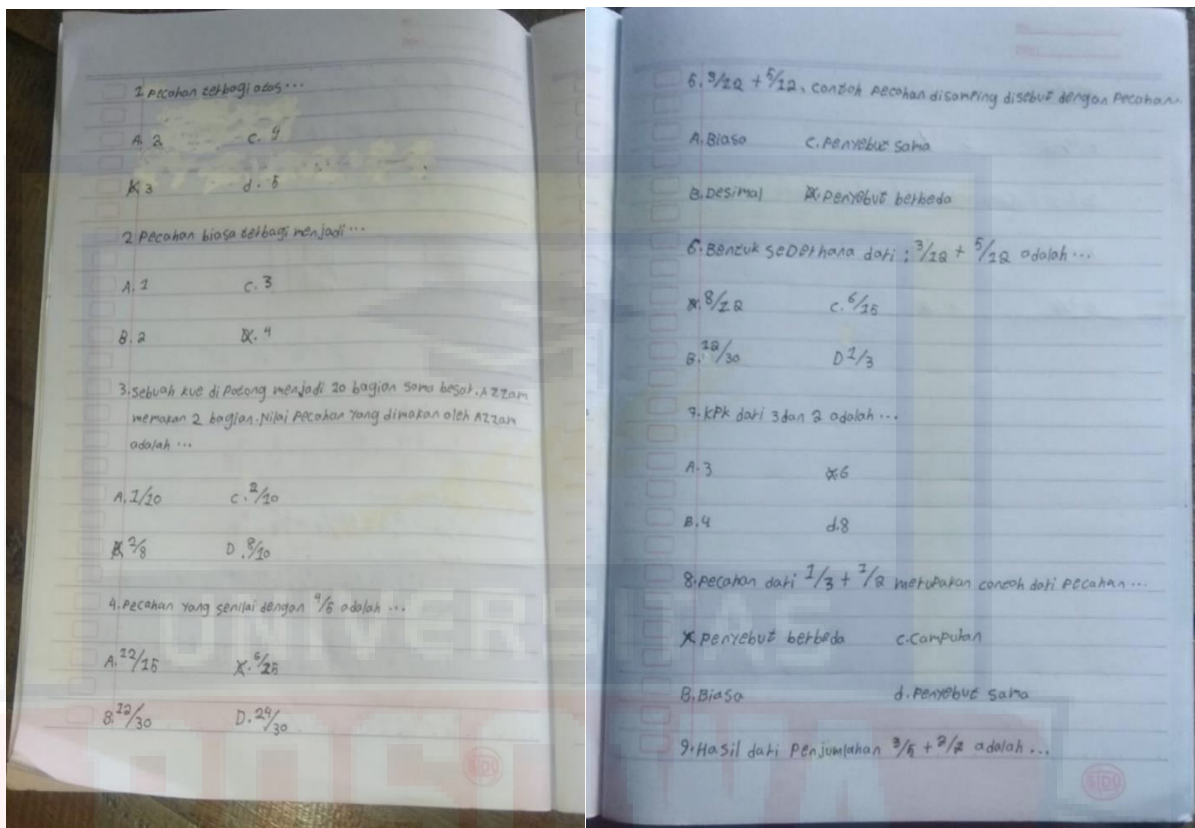 1 Pecahan terbagi atas...
A. 2 C. 4
B. 3 d. 5
2 Pecahan biasa terbagi menjadi...
A. 1 C. 3
B. 2 D. 4
3. Sebuah kue di potong menjadi 10 bagian sama besar. Azzam
memakan 2 bagian. Nilai Pecahan yang dimakan oleh Azzam
adalah...
A. 1/10 C. 2/10
B. 2/8 D. 8/10
4. Pecahan yang senilai dengan 4/5 adalah...
A. 12/15 C. 6/25
B. 12/30 D. 24/30
5. 3/12 + 5/12, contoh pecahan disamping disebut dengan Pecahan..
A. Biasa C. Penyebut sama
B. Desimal D. Penyebut berbeda
6. Bentuk seDerhana dari : 3/12 + 5/12 adalah...
A. 8/12 C. 6/15
B. 12/30 D 1/3
7. KPK dari 3 dan 2 adalah...
A. 3 C. 6
B. 4 d. 8
8. Pecahan dari 1/3 + 1/2 merupakan contoh dari pecahan...
A Penyebut berbeda C. Campuran
B. Biasa d. Penyebut sama
9. Hasil dari Penjumlahan 3/5 + 2/2 adalah...
UNIVERSITAS
BOSOWA
SIDU
SIDU